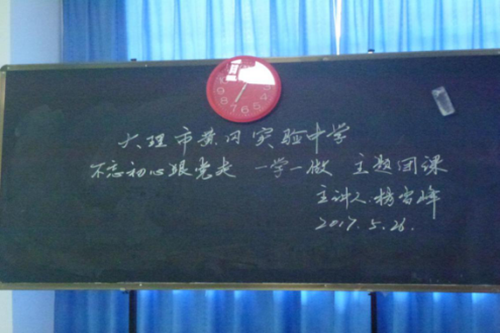 大理市黄冈实验中学
不忘初心跟党走 一学一做 主题团课
主讲人:杨雪峰
2017.5.26.